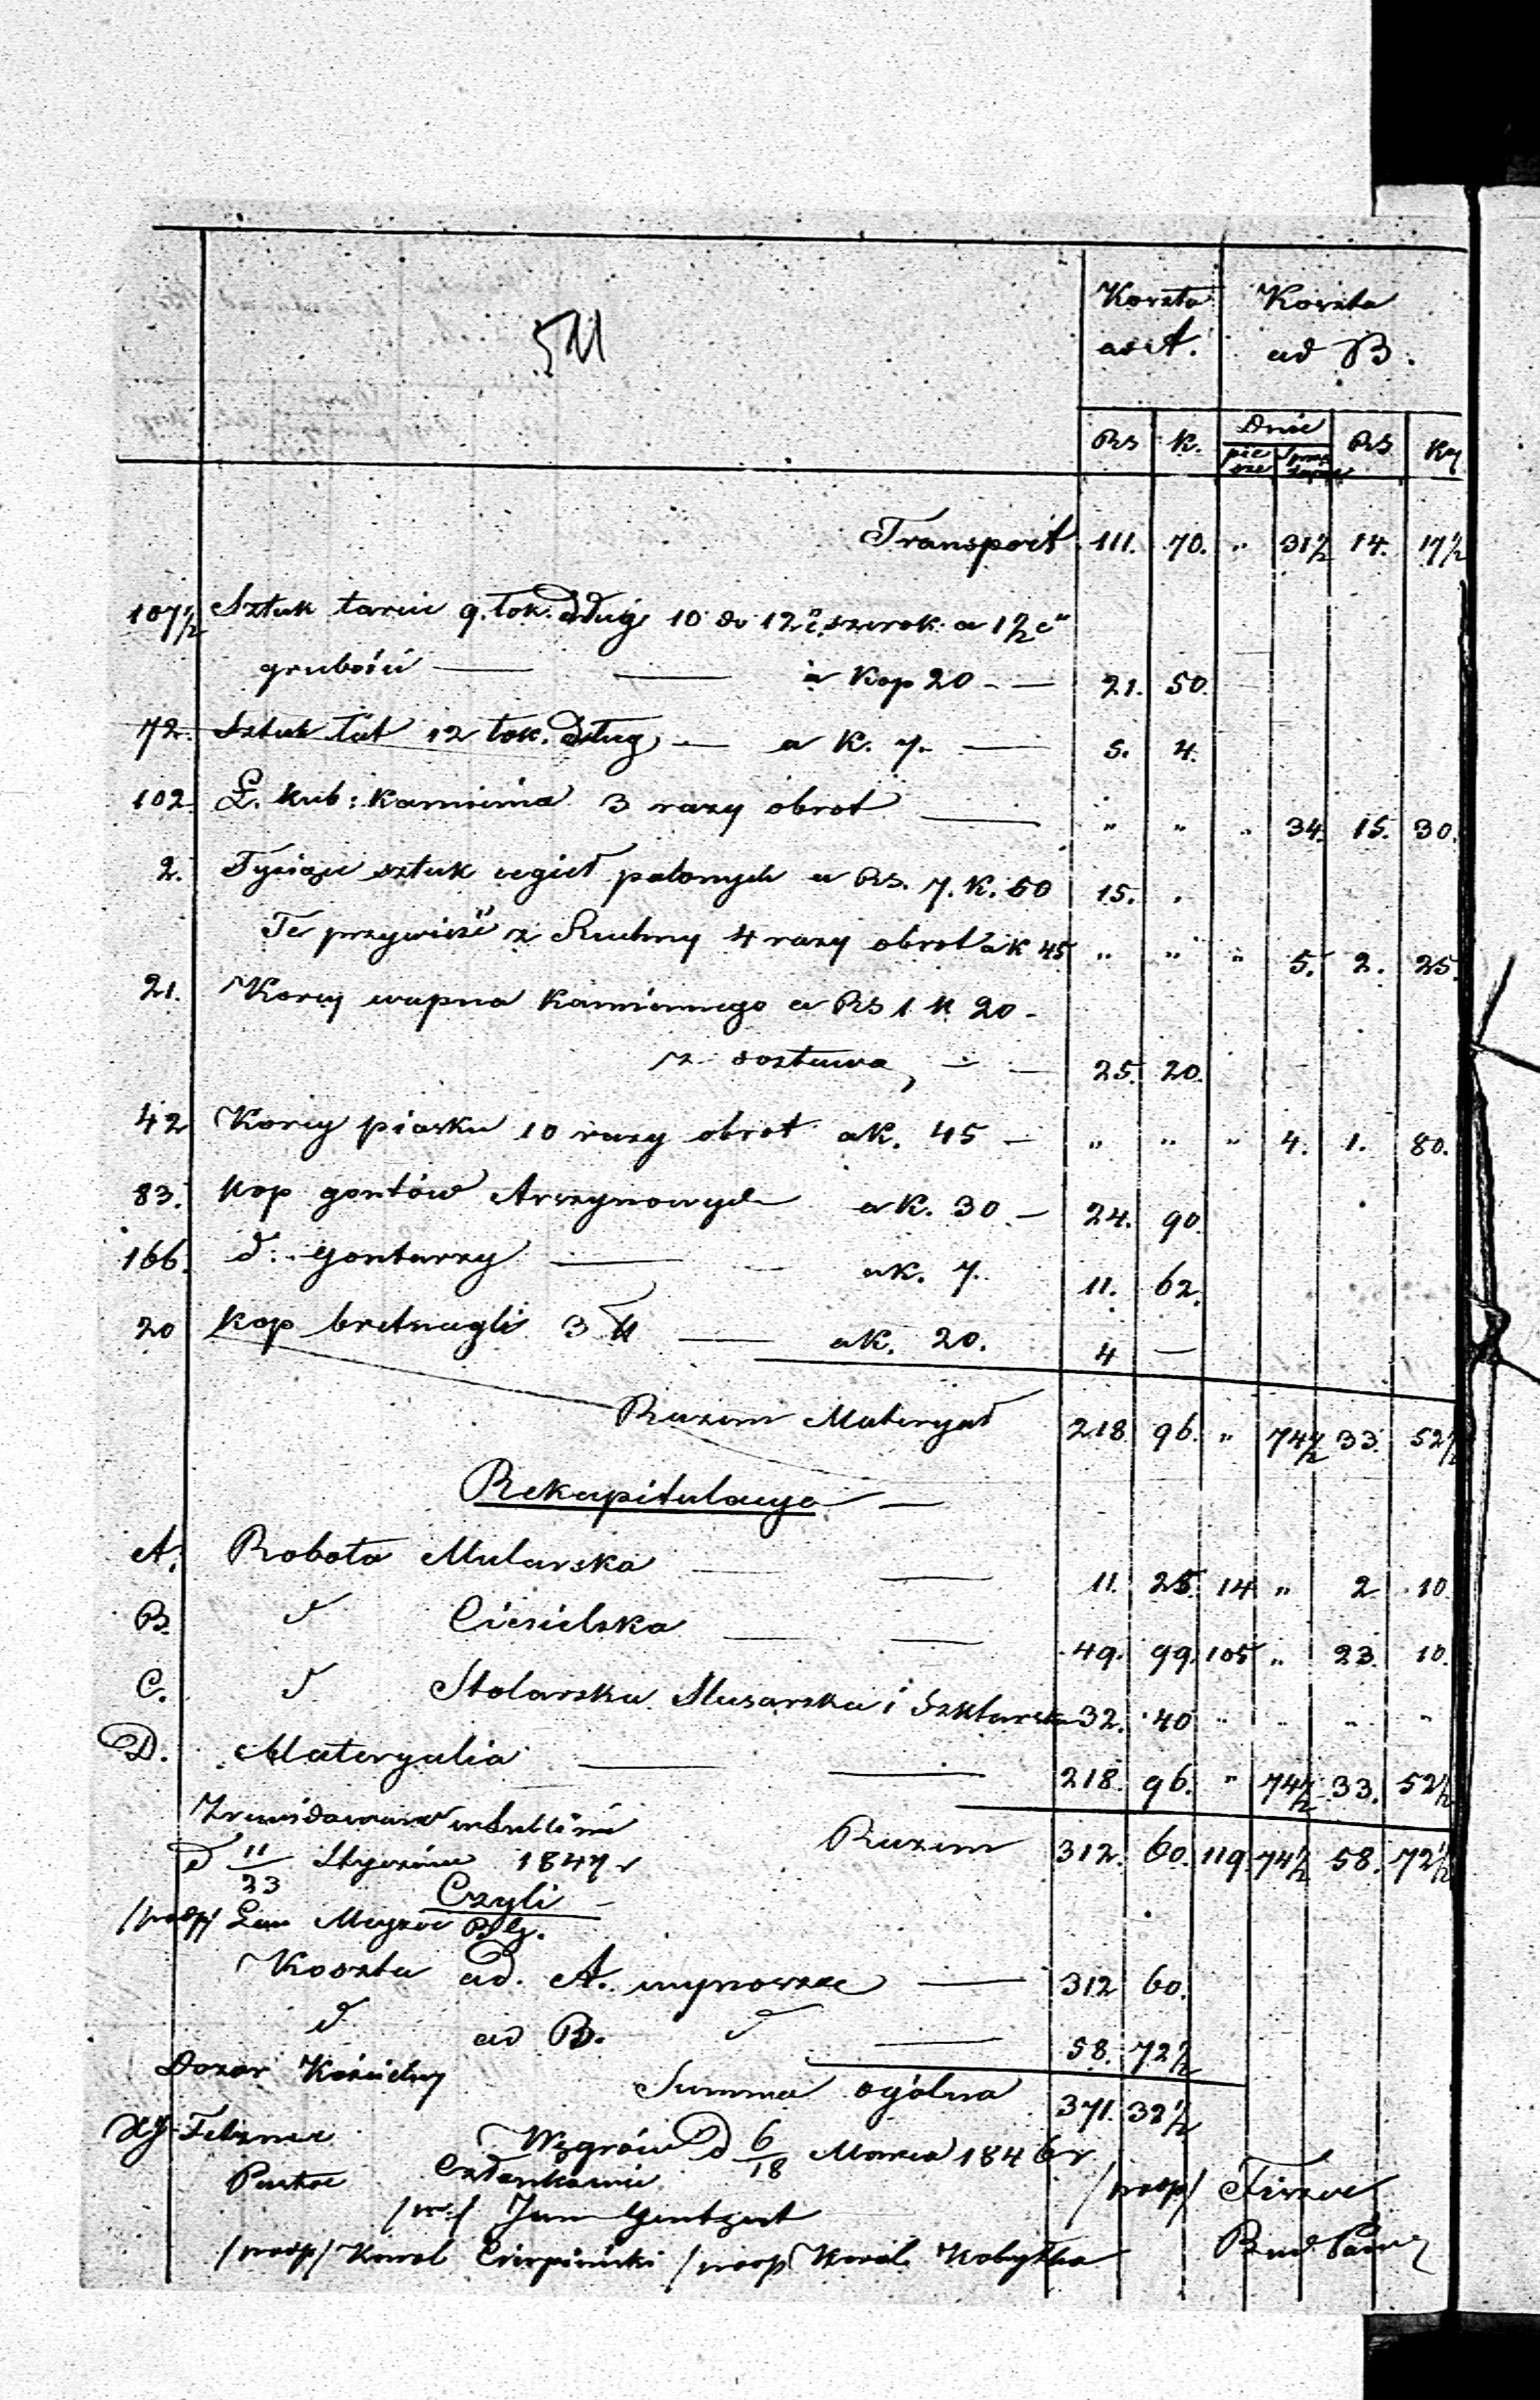 511
Koszta ad A. Koszta ad B.
RS k. Dnie RS Ky
piesze sprzężajne
Transport 111. 70. " 31½ 14. 17½
107½ Sztuk tarcic 9. łok. długi 10 do 12 c. szerok: a 1½ c"
grubości — — à Kop 20 — — 21. 50.
72. Sztuk łat 12 łok. dług, — a K. 7. — 5. 4.
102 Ł. kub: kamienia 3 razy obrot — " " " 34. 15. 30.
2. Tysiące sztuk cegieł palonych a RS. 7. K. 50 15. "
Te przywieść z Ruchny 4 razy obrot a K 45 " " " 5. 2. 25.
21. Korcy wapna kamiennego a RS 1 K 20 -
z dostawą, — — 25. 20.
42 Korcy piasku 10 razy obrot a K. 45 — " " " 4. 1. 80.
83. kop gontów Arszynowych a K. 30 — 24. 90
166. d. gontarzy — — a K. 7. 11. 62.
20 kop bretnagli — a K. 20. 4 —
Razem Materyał 218 96. " 74½ 33. 52½
Rekapitulacya —
A. Robota Mularska — — 11. 25. 14 " 2 10.
B. d Ciesielska — — 49. 99. 105 " 23. 10.
C. d. Stolarska Slusarska i Szklarska 32. 40 " " " "
D. Materyalia — — 218. 96. " 74½ 33. 52½
Razem 312. 60. 119. 74½ 58. 72½
Zrewidowano w Lublinie
d 11/23 Stycznia 1847 r
Czyli
/podp/ Meyzer B. G.
Koszta ad. A. wynoszą — 312 60.
d ad B. d — 58. 72½
Summa ogólna 371. 32½
Dozór Kościelny
Węgrów d 6/18 Marca 1846 r
Pastor
Członkowie
/podp/ Jan
/podp/ Karol Cierpiński /podp/ Karol Kobyłka
/podp/
Bud Pow